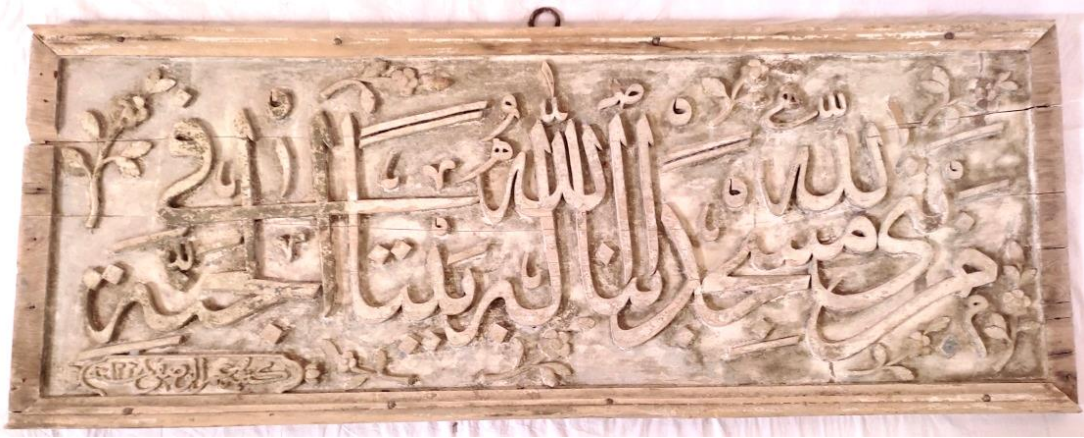 من بنى لله مسجدا بنا الله له بيتا في الجنة